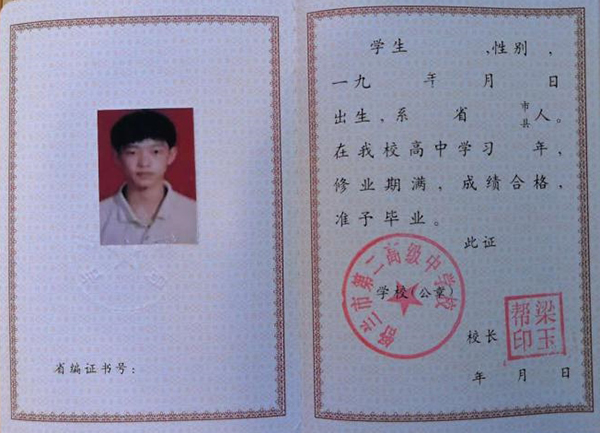 省编证书号：
学生 、性别 ，
一九 年 月 日
出生，系 省 市县 人。
在我校高中学习 年，
修业期满，成绩合格，
准予毕业。
此证
兴市第二高级中学校
学校（公章）
梁玉
帮印
校长
年 月 日